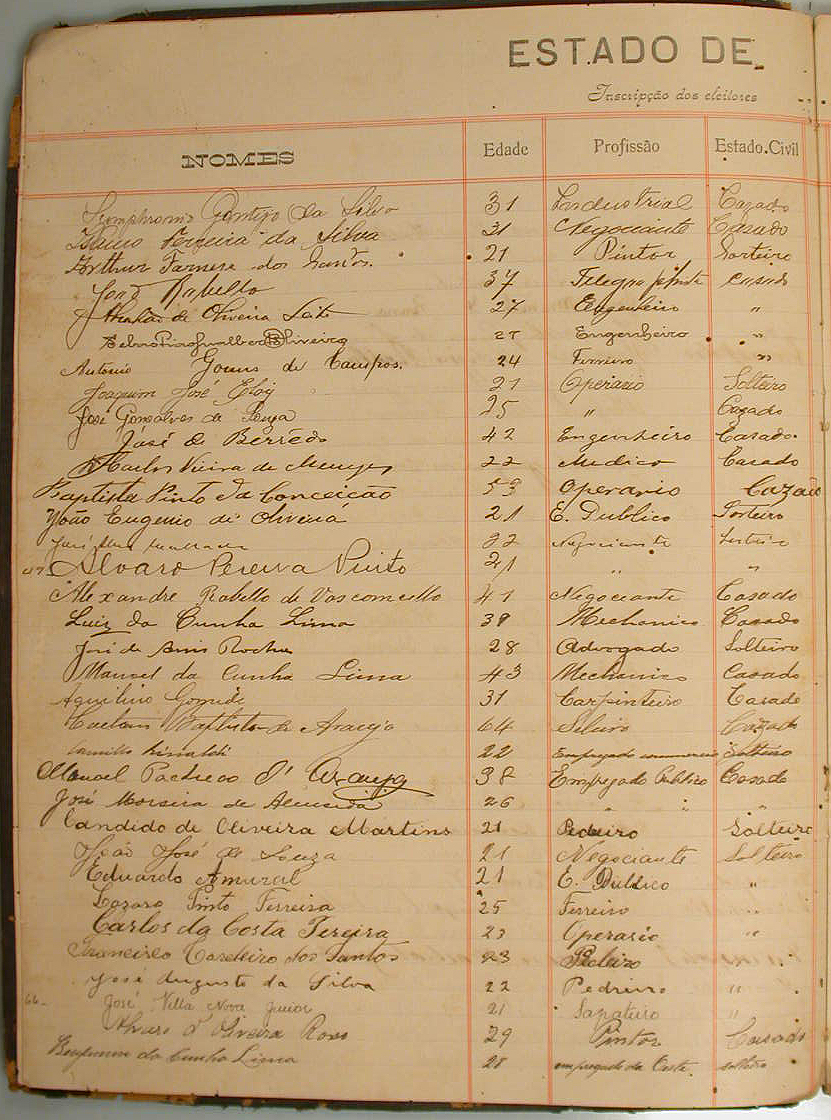 ESTADO DE
Inscripção dos eleitores
NOMES Edade Profissão Estado Civil
Symphronio Gontijo da Silva 31 Industrial Cazado
Ferreira da Silva 31 Negociante Casado
Arthur Farnese dos Santos. 21 Pintor Sorteiro
José Rabello 37 Telegraphista casado
de Oliveira Leite 27 Engenheiro "
Oliveira 27 Engenheiro "
Antonio Gomes de Campos. 24 Ferreiro "
Joaquim José Eloy 21 Operario Solteiro
José Gonsalves de Souza 25 " Cazado
José de Berrêdo 42 Engenheiro Casado.
Carlos Vieira de Menezes 22 Medico Casado
Baptista Pinto da Conceição 53 Operario Cazado
João Eugenio de Oliveira 21 E. Publico Sorteiro
José 32 Negociante
Alvaro Pereira Pinto 21 " "
Alexandre Rabello de Vasconcello 41 Negociante Casado
Luiz da Cunha Lima 39 Mechanico Casado
José de Assis Rocha 28 Advogado Solteiro
Manoel da Cunha Lima 43 Mechanico Casado
Aquilino Gomide 31 Carpinteiro Casado
Caetano Baptista de Araujo 64 Seleiro Cazado
Camillo 22 Empregado commercio Solteiro
Manoel Pacheco d'Araujo 38 Empregado Publico Casado
José Moreira de Almeida 26 " "
Candido de Oliveira Martins 21 Pedreiro Solteiro
João José de Souza 21 Negociante Solteiro
Eduardo Amaral 21 E. Publico "
Lazaro Pinto Ferreira 25 Ferreiro "
Carlos da Costa Pereira 23 Operario "
Francisco Cordeiro dos Santos 23 Pedreiro "
José Augusto da Silva 22 Pedreiro "
66 José Villa Nova Junior 21 Sapateiro "
Alvaro d'Oliveira Rosa 29 Pintor Casado
da Cunha Lima 28 empregado da Oeste solteiro